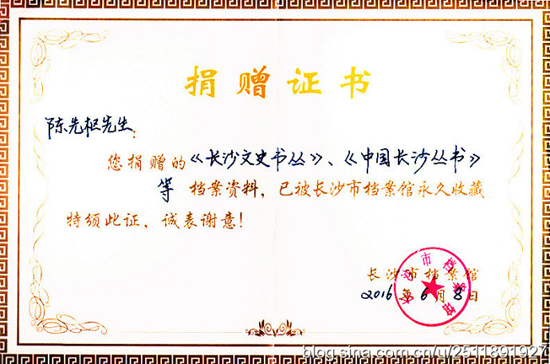 捐赠证书
陈先枢先生：
您捐赠的《长沙文史书丛》、《中国长沙丛书》
等 档案资料，已被长沙市档案馆永久收藏
特颁此证，诚表谢意！
长沙市档案馆
2016年6月8日
长沙市档案馆
blog.sina.com.cn/u/2511891927